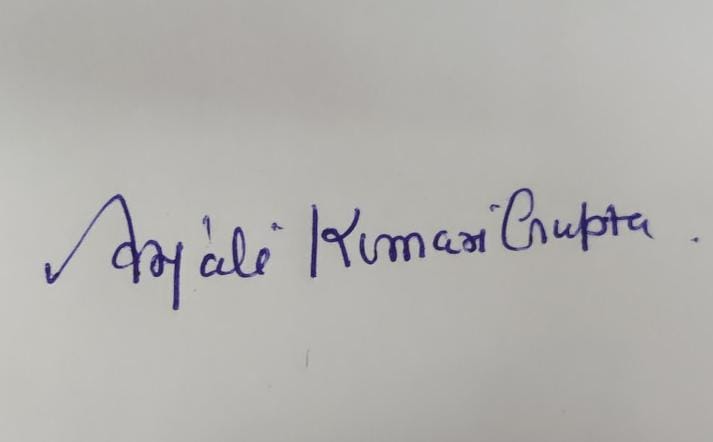 Anjali Kumari Gupta.